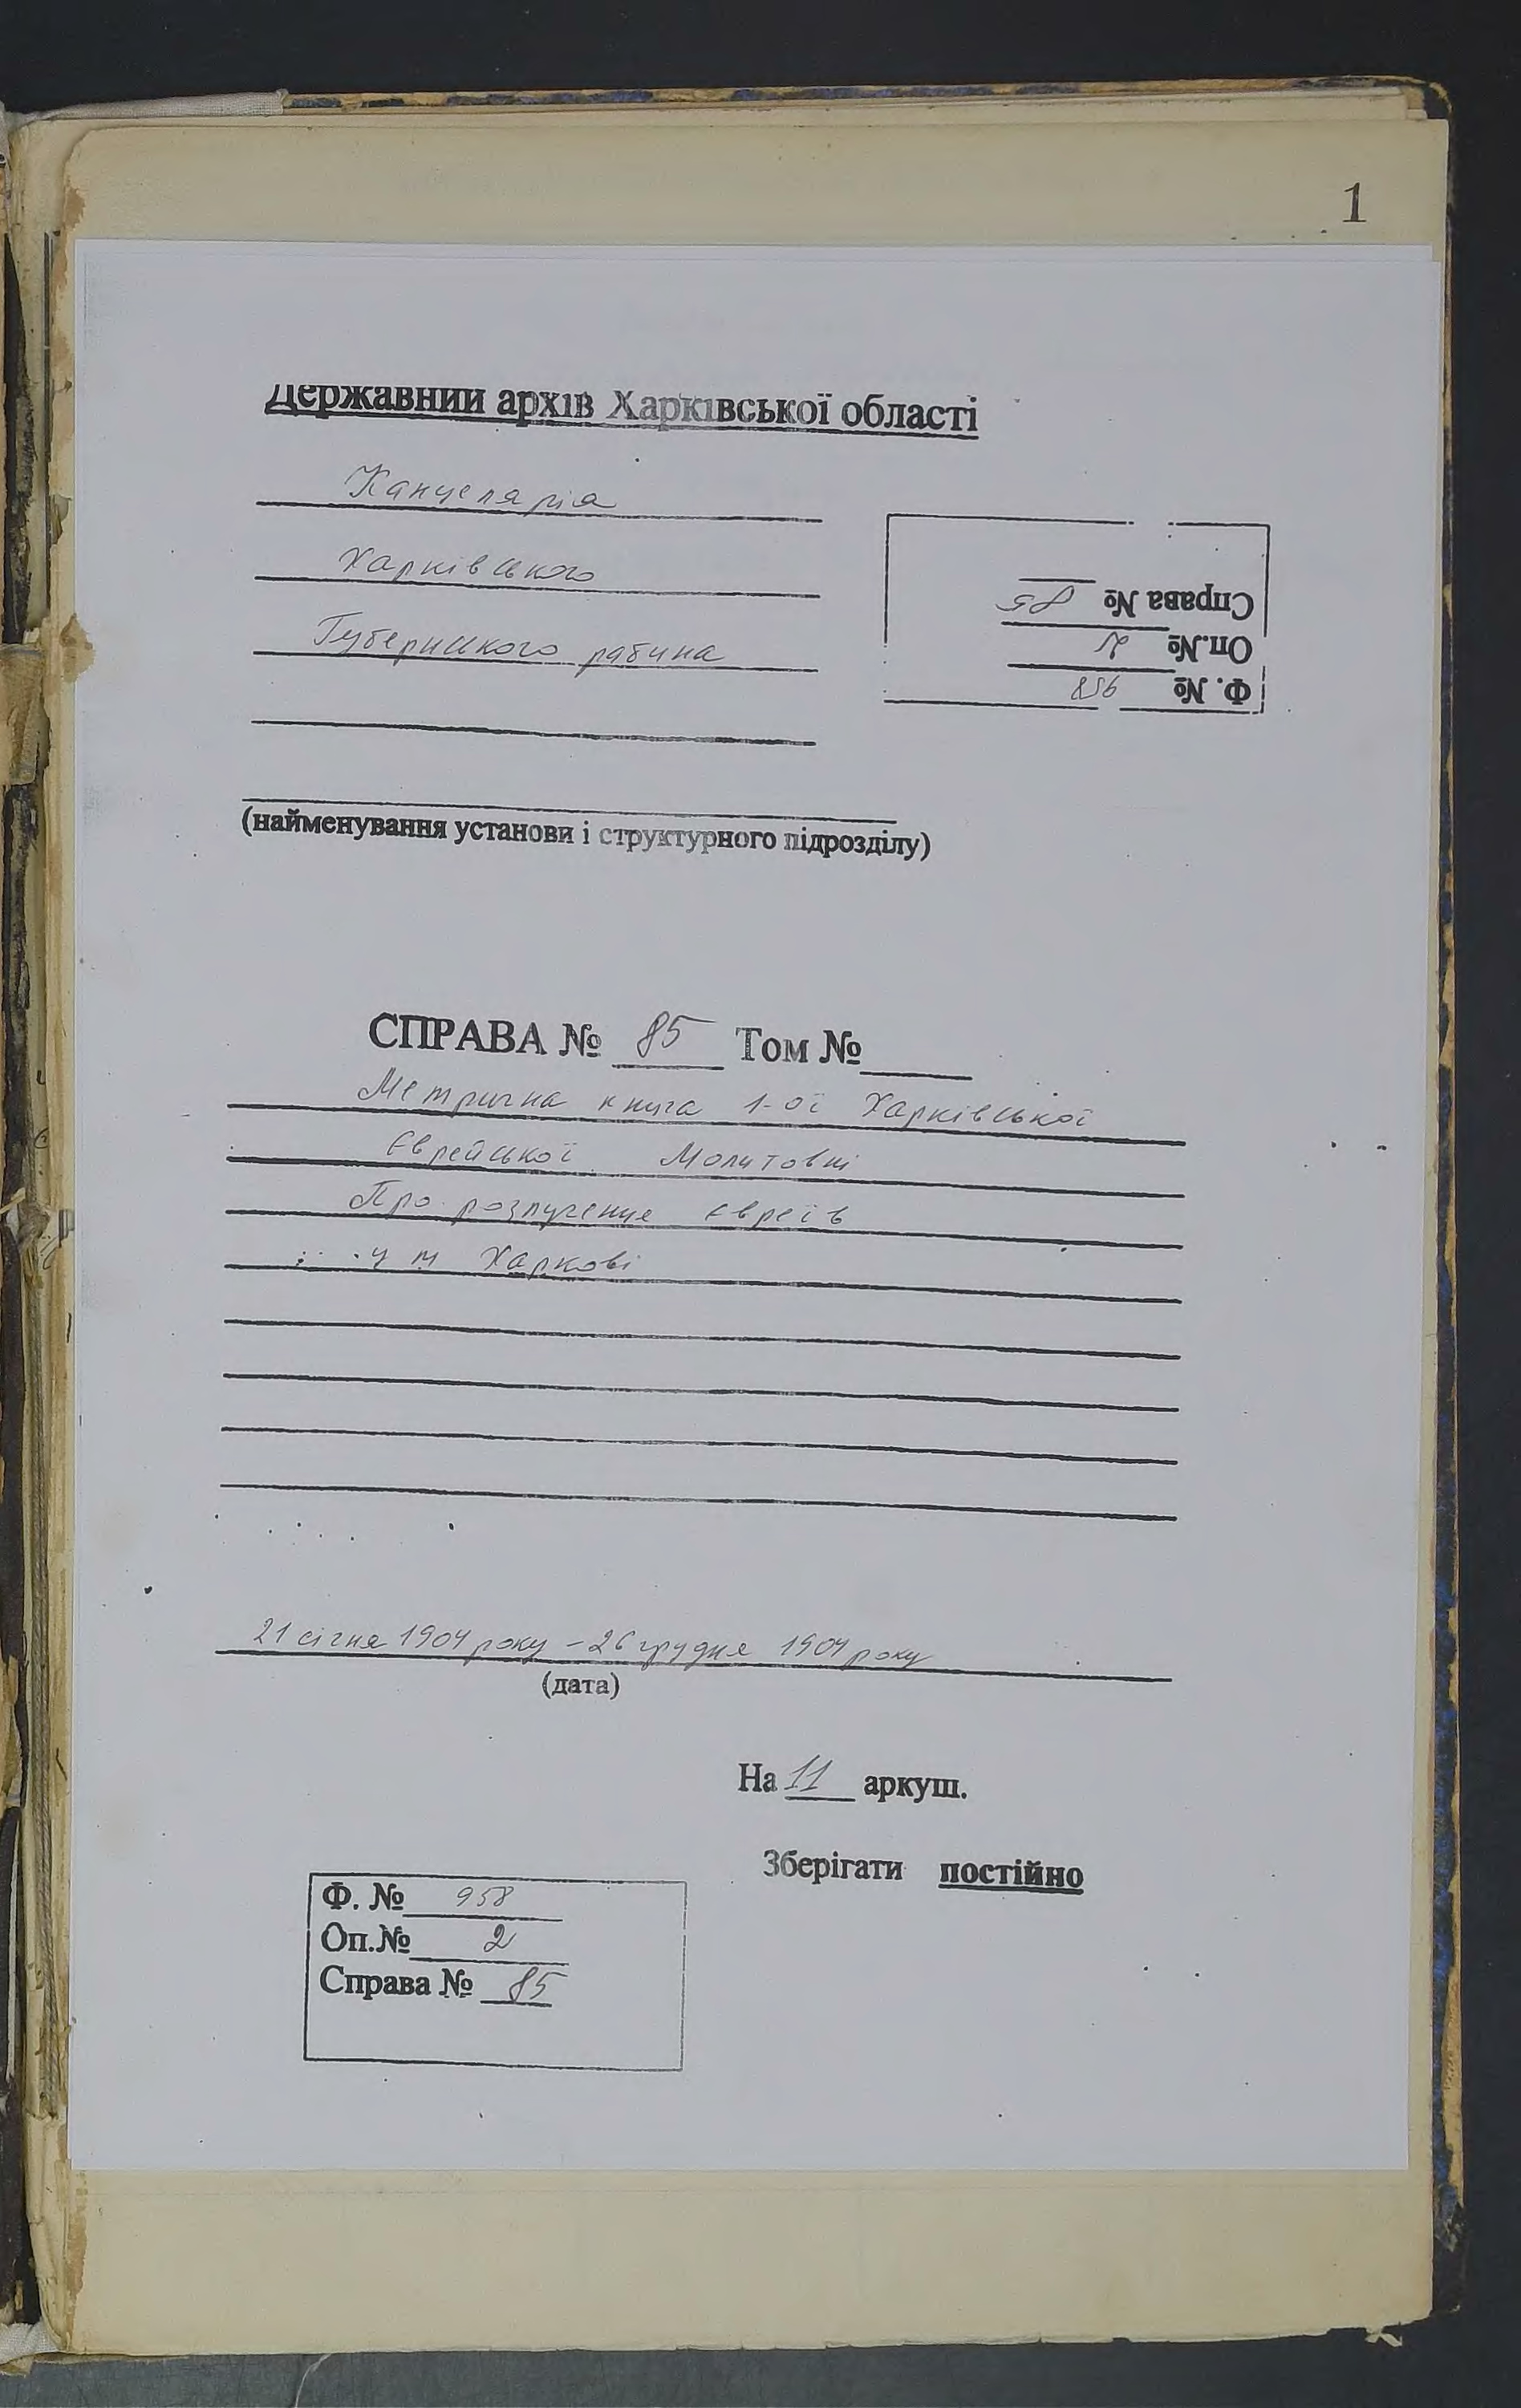 1
Державний архів Харківської області
Канцелярія
Харківського
Губернського рабина
Справа № 85
Оп.№ 2
Ф. № 958
(найменування установи і структурного підрозділу)
СПРАВА № 85 Том №
Метрична книга 1-ої Харківської
Єврейської Молитовні
Про розлучення євреїв
у м Харкові
21 січня 1904 року – 26 грудня 1904 року
(дата)
На 11 аркуш.
Зберігати постійно
Ф. № 958
Оп.№ 2
Справа № 85